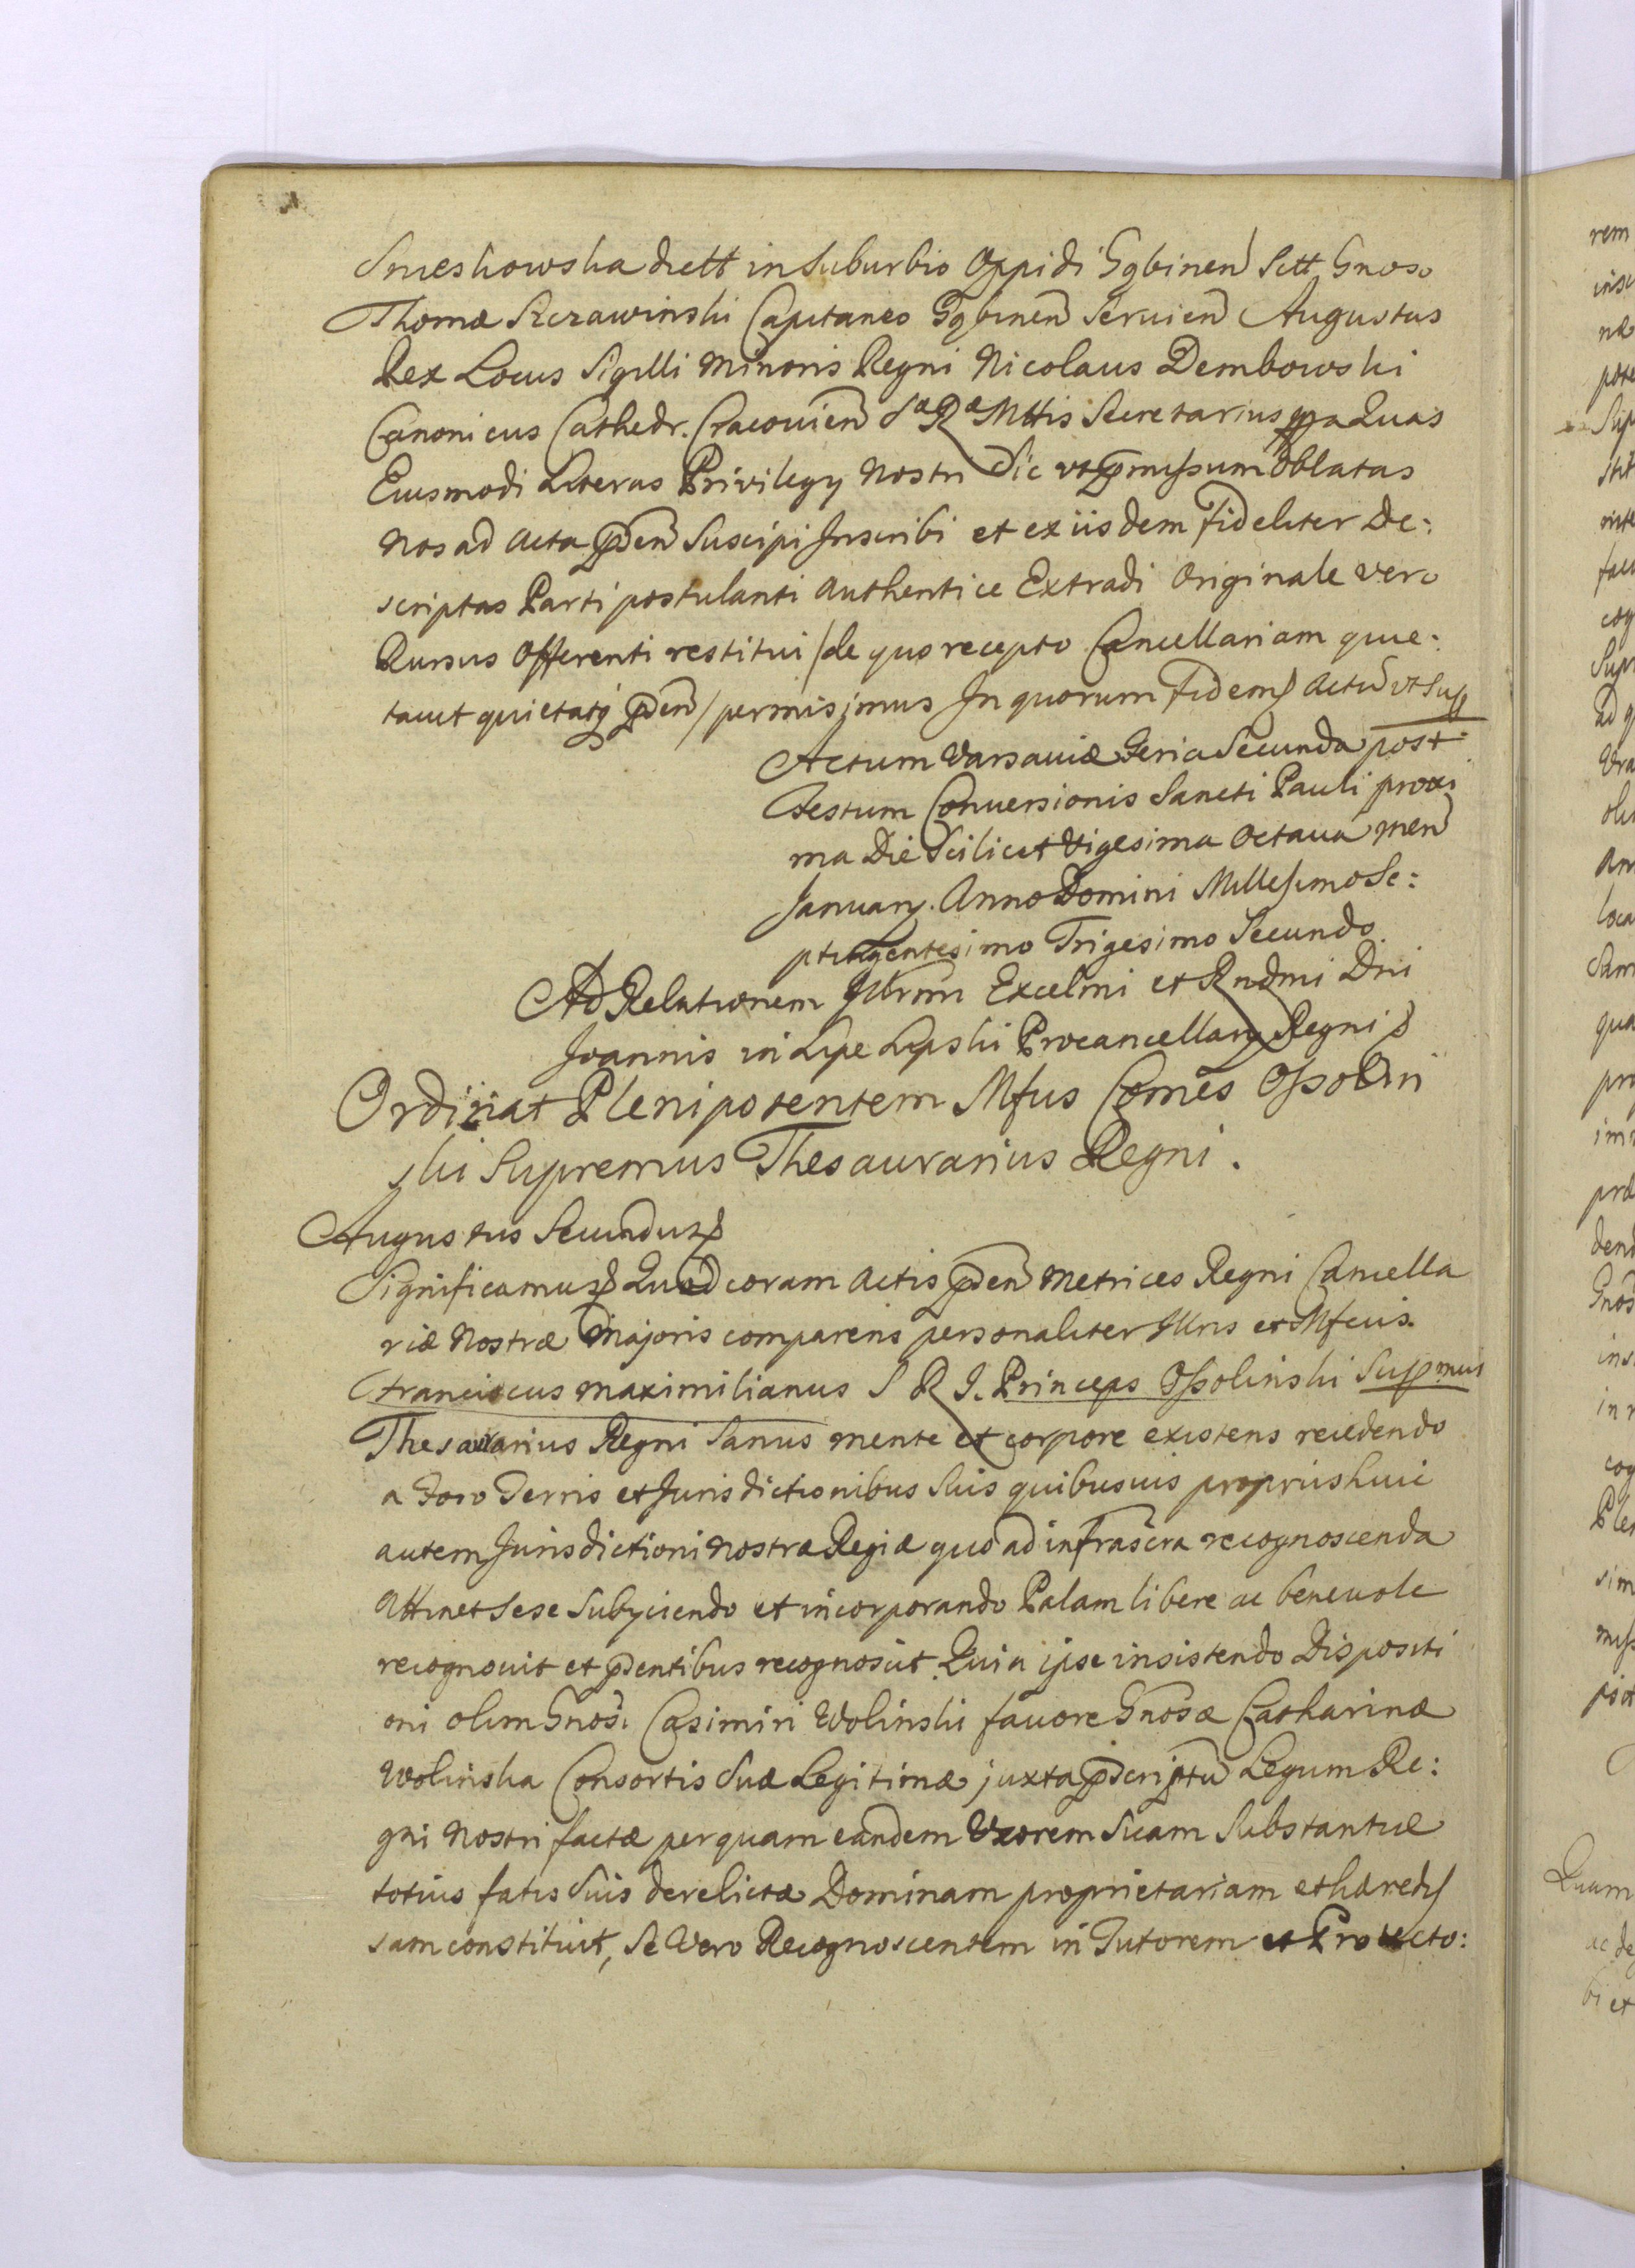 Smeskowska dictt in Suburbio Oppidi Gąbinen Sitt Gnoso
Thomæ Skrzawinski Capitaneo Gąbinen Seruien Augustus
Rex Locus Sigilli Minoris Regni Nicolaus Dembowski
Canonicus Cathedr. Cracouien Sæ Ræ Mttis Secretarius mppa Quas
Eiusmodi Literas Privilegij Nostri Sic ut p̄missum Oblatas
Nos ad Acta p̄den Suscipi Inscribi et ex iisdem fideliter De:
scriptas Parti postulanti Authentice Extradi Originale vero
Rursus Offerenti restitui /de quo recepto Cancellariam quie:
tauit quietatq p̄den/ permisimus In quorum fidem Actũ ut Sup
Actum Varsaviæ Feria Secunda post
Festum Conuersionis Sancti Pauli proxi
ma Die Scilicet Vigesima Octaua Men
January. Anno Domini Millesimo Se:
ptingentesimo Trigesimo Secundo.
Ad Relationem Illrmi Excelmi et Rndmi Dni
Joannis in Lipe Lipski Procancellarij Regni
Ordinat Plenipotentem Mfus Comes Ossolin
ski Supremus Thesaurarius Regni.
Augustus Secundus
Significamus Quod coram Actis p̄den Metrices Regni Cancella
riæ Nostræ Majoris comparens personaliter Illris et Mfcus.
Franciscus Maximilianus S R J. Princeps Ossolinski Supmus
Thesaurarius Regni Sanus mente et corpore existens recedendo
a Foro Terris et Jurisdictionibus Suis quibusuis proprijs huic
autem Jurisdictioni Nostræ Regiæ quo ad infrascra recognoscenda
Attinet Sese Subyciendo et incorporando Palam libere ac beneuole
recognouit et p̄dentibus recognoscit. Quia ipse insistendo Dispositi
oni olim Gnosi Casimiri Wolinski fauore Gnosæ Catharinæ
Wolinska Consortis Suæ Legitimæ juxta p̄scriptũ Legum Re:
gni Nostri factæ per quam eandem Uxorem Suam Substantiæ
totius fatis Suis derelictæ Dominam proprietariam et hæred
sam constituit, Se Vero Recognoscentem in Tutorem et Protecto: